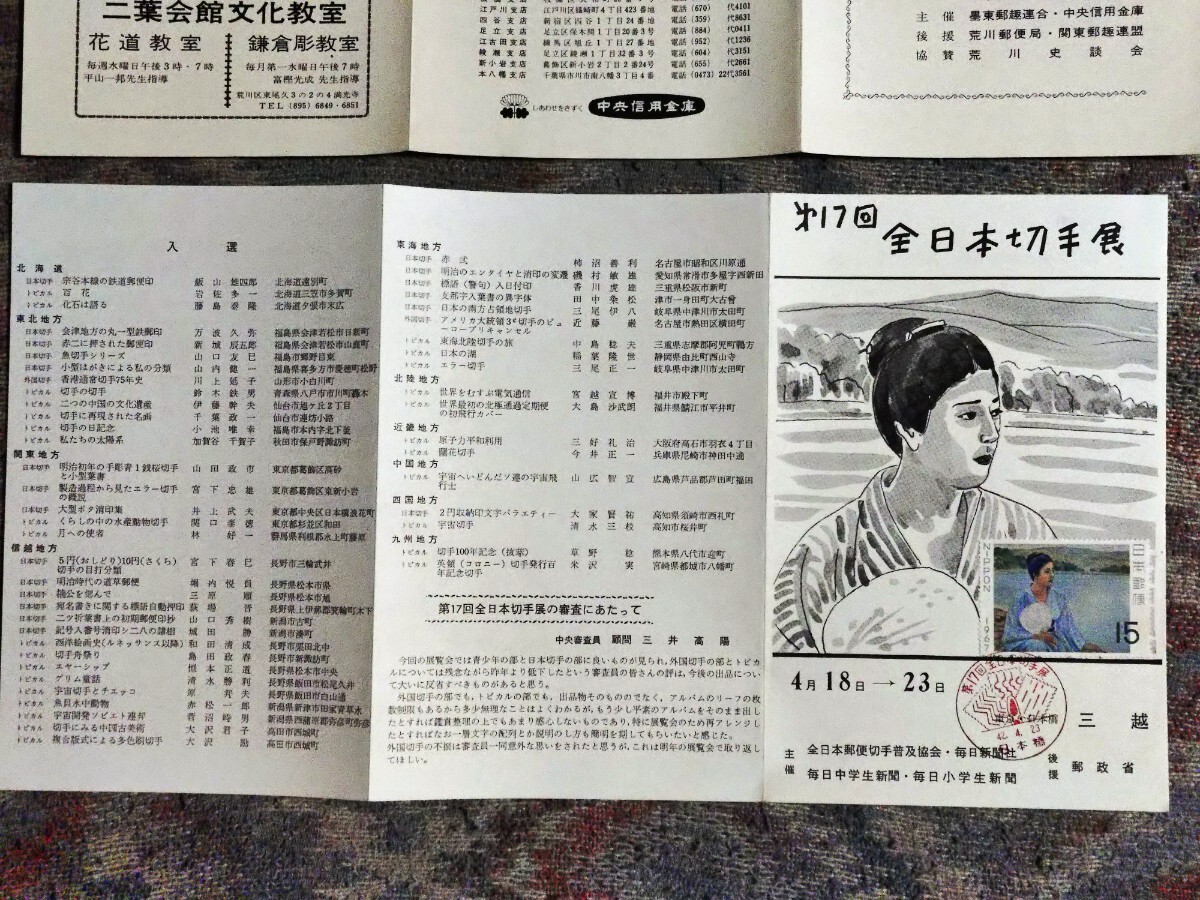 二葉会館文化教室
花道教室
毎週水曜日午後3時・7時
平山一邦先生指導
鎌倉彫教室
毎月第一水曜日午後7時
富樫光成 先生指導
荒川区東尾久3の2の4満光寺
TEL (895) 6849・6851
江戸川支店 江戸川区篠崎町4丁目423番地 電話 (670) 4101
四谷支店 新宿区四谷1丁目24番地 電話 (359) 8631
足立支店 足立区保木間1丁目20番3号 電話 (884) 0411
江古田支店 練馬区旭丘1丁目27番地 電話 (952) 1236
綾瀬支店 足立区綾瀬1丁目32番3号 電話 (604) 3151
新小岩支店 葛飾区新小岩2丁目2番地 電話 (655) 2661
本八幡支店 千葉県市川市南八幡3丁目4番地 電話 (0473) 22代3561
しあわせをきずく 中央信用金庫
主催 墨東郵趣連合・中央信用金庫
後援 荒川郵便局・関東郵趣連盟
協賛 荒川史談会
入選
北海道
日本切手 宗谷本線の鉄道郵便印 飯山雄四郎 北海道遠別町
トピカル 百花 岩佐多一 北海道三笠市多賀町
トピカル 化石は語る 藤島泰隆 北海道夕張市末広
東北地方
日本切手 会津地方の丸一型鉄郵印 万波久弥 福島県会津若松市日新町
日本切手 赤二に押された郵便印 新城辰五郎 福島県会津若松市山鹿町
日本切手 魚切手シリーズ 山口友巳 福島市郷野目東
日本切手 小型はがきによる私の分類 山内健一 福島県喜多方市慶徳町松野
外国切手 香港通常切手75年史 川上延子 山形市小白川町
トピカル 切手の切手 鈴木鉄男 青森県八戸市市川町轟木
トピカル 二つの中国の文化遺産 伊藤幹夫 仙台市旭ケ丘2丁目
トピカル 切手に再現された名画 千葉政一 仙台市連坊小路
トピカル 切手の日記念 小池唯幸 福島市本内字北下釜
トピカル 私たちの太陽系 加賀谷千賀子 秋田市保戸野諏訪町
関東地方
日本切手 明治初年の手彫青1銭桜切手
と小型葉書 山田政市 東京都葛飾区高砂
日本切手 製造過程から見たエラー切手
の概説 宮下忠雄 東京都葛飾区東新小岩
日本切手 大型ボタ消印集 井上武夫 東京都中央区日本橋浪花町
トピカル くらしの中の水産動物切手 関口孝徳 東京都杉並区和田
トピカル 月への使者 林好一 群馬県利根郡水上町藤原
信越地方
日本切手 5円(おしどり)10円(さくら)
切手の目打分類 宮下春巳 長野市三輪武井
日本切手 明治時代の道草郵便 堀内悦貞 長野県松本市県
日本切手 楠公を偲んで 三原順 長野県松本市旭
日本切手 宛名書きに関する標語自動押印 荻場晋 長野県上伊那郡箕輪町木下
日本切手 二ツ折葉書上の初期郵便印抄 山口秀樹 新潟市古町
日本切手 記号入番号消印シ二八の諸相 城田勝 新潟市湊町
トピカル 西洋絵画史(ルネッサンス以降) 和田清成 長野県須坂市
トピカル 切手舟祭り 島田政春 長野市新諏訪町
トピカル エヤーシップ 恒本正道 長野県松本市中央
トピカル グリム童話 清水勝利 長野県飯田市松尾久井
トピカル 宇宙切手とチェッコ 原邦夫 長野県飯田市白山通
トピカル 魚貝水中動物 赤松一郎 新潟県新津市田家青草水
トピカル 宇宙開発ソビエト連邦 菅沼時男 新潟県西蒲原郡弥彦町弥彦
トピカル 切手にみる中国古美術 大沢君子 高田市西城町
トピカル 複合版式による多色刷切手 大沢勋 高田市西城町
東海地方
日本切手 赤弐 柿沼善利 名古屋市昭和区川原通
日本切手 明治のエンタイヤと消印の変遷 磯村敏雄 愛知県常滑市多屋字西新田
日本切手 標語(警句)入日付印 香川虎雄 三重県松阪市新町
日本切手 支那字入葉書の異字体 田中粂松 津市一身田町大古曽
日本切手 日本の南方占領地切手 三尾伊八 岐阜県中津川市太田町
外国切手 アメリカ大統領3¢切手のビュ
ーロープリキャンセル 近藤巌 名古屋市熱田区横田町
トピカル 東海北陸切手の旅 中島稔夫 三重県志摩郡阿児町鵜方
トピカル 日本の湖 稲葉隆世 静岡県由比町西山寺
トピカル エラー切手 三尾正一 岐阜県中津川市太田町
北陸地方
トピカル 世界をむすぶ電気通信 宮越宣博 福井市殿下町
トピカル 世界最初の北極通過定期便
の初飛行カバー 大島沙武朗 福井県鯖江市平井町
近畿地方
トピカル 原子力平和利用 三好礼治 大阪府高石市羽衣4丁目
トピカル 蘭花切手 今井正一 兵庫県尼崎市神田中通
中国地方
トピカル 宇宙へいどんだソ連の宇宙飛
行士 山広智宣 広島県芦品郡芦田町福田
四国地方
日本切手 2円収納印文字バラエティー 大家賢祐 高知県須崎市西礼町
トピカル 宇宙切手 清水三枝 高知市桜井町
九州地方
トピカル 切手100年記念(抜萃) 草野稔 熊本県八代市迎町
トピカル 英領(コロニー)切手発行百
年記念切手 米沢実 宮崎県都城市八幡町
第17回全日本切手展の審査にあたって
中央審査員 顧問 三井高陽
今回の展覧会では青少年の部と日本切手の部に良いものが見られ、外国切手の部とトピカ
ルについては残念ながら昨年より低下したという審査員の皆さんの評は、今後の出品につい
て大いに反省すべきものがあると思う。
外国切手の部でも、トピカルの部でも、出品物そのものでなく、アルバムのリーフの枚
数制限もあるから多少無理なことはよくわかるが、もう少し平素のアルバムをそのまま出し
たとすれば鑑賞整理の上でもあまり感心しないものであり、特に展覧会のため再アレンジし
たとすればなお一層文字の配列とか説明のし方も簡明を期してもらいたいと感じた。
外国切手の不振は審査員一同意外な思いをされたと思うが、これは明年の展覧会で取り返し
てほしい。
第17回
全日本切手展
日本郵便
NIPPON
1967
15
4月18日→23日
第17回全日本切手展
42.4.23
日本橋
東京・日本橋 三越
主催 全日本郵便切手普及協会・毎日新聞社
毎日中学生新聞・毎日小学生新聞
後援 郵政省